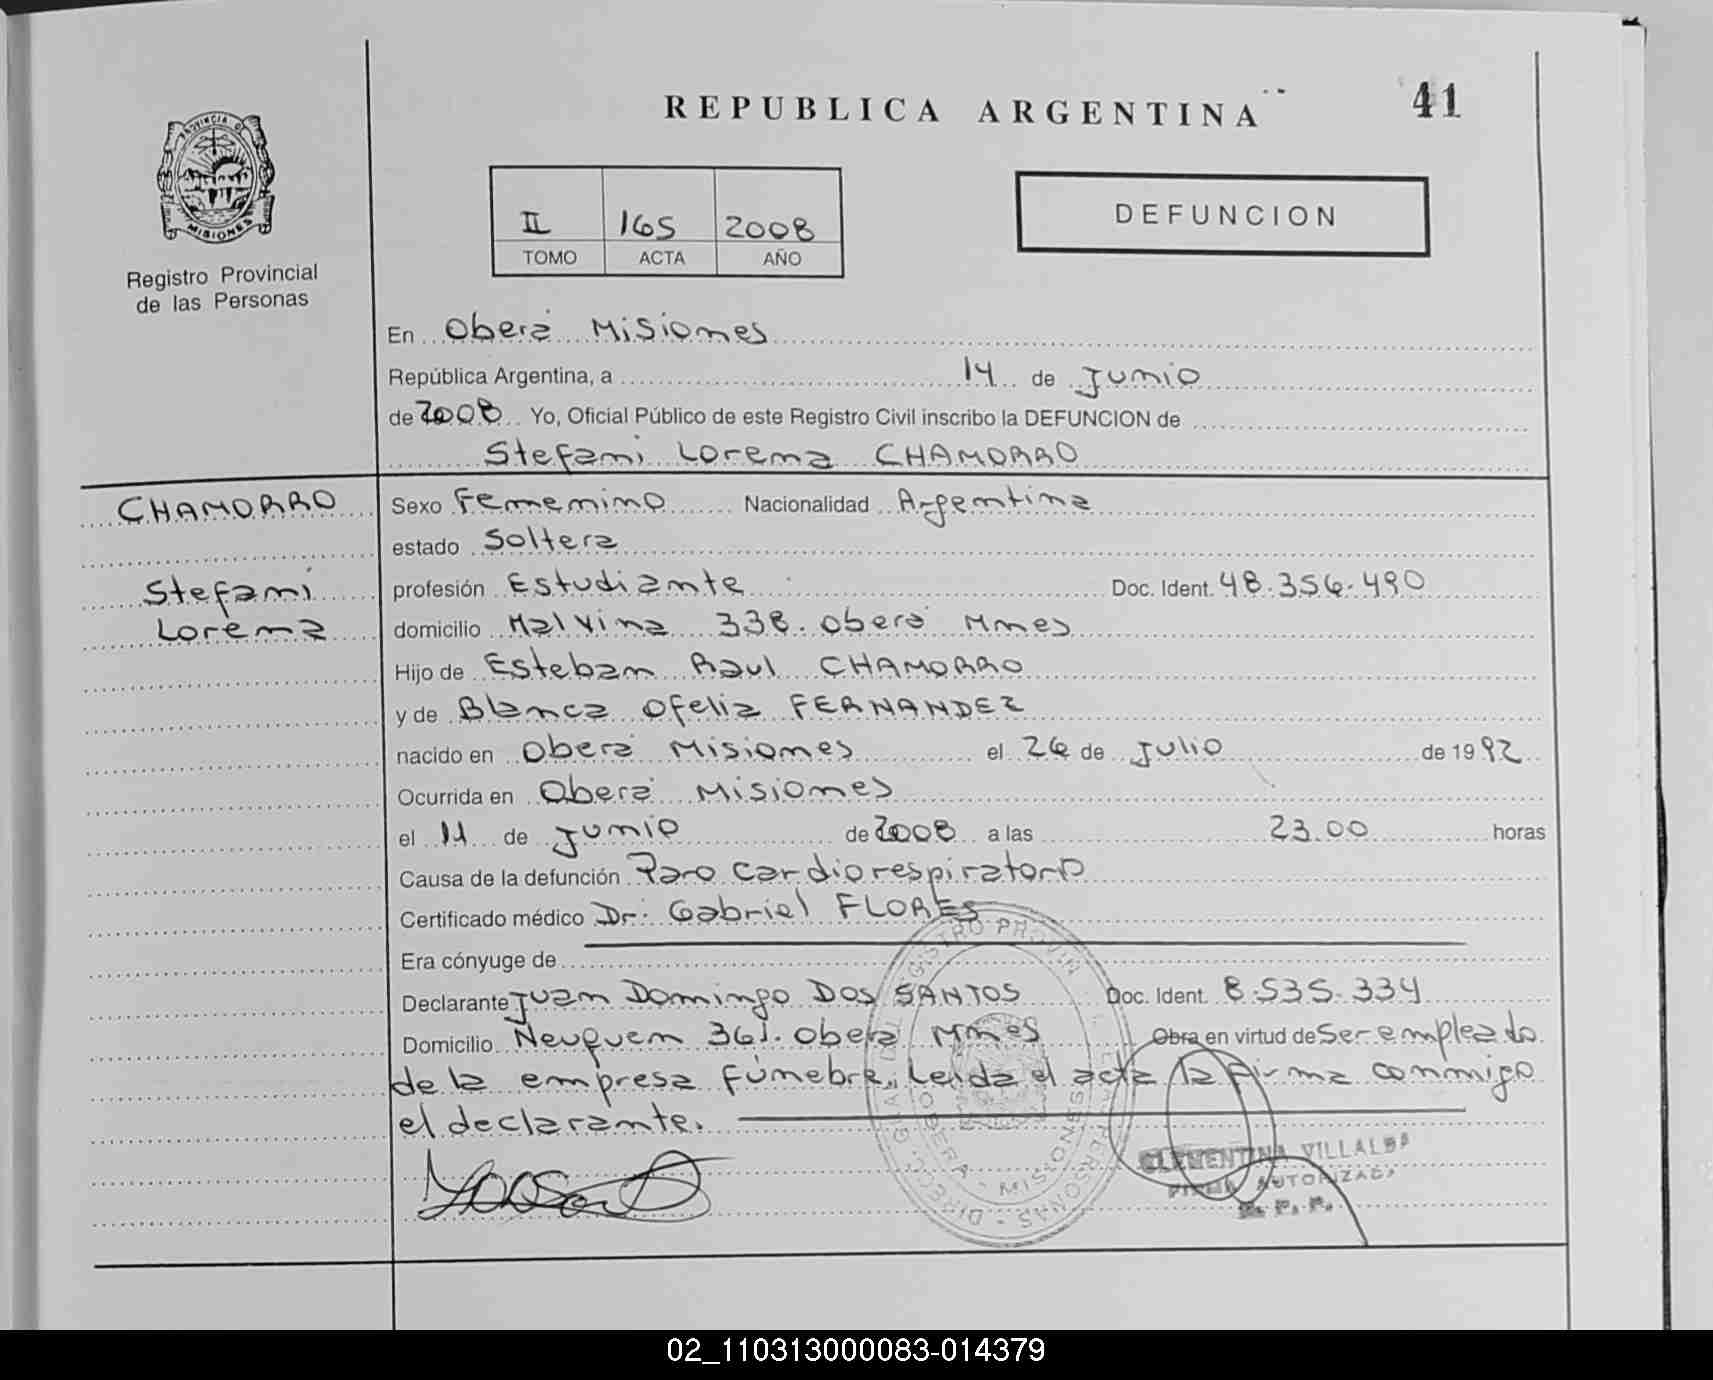 REPUBLICA ARGENTINA
41
PROVINCIA D
MISIONES
Registro Provincial
de las Personas
II 165 2008
TOMO ACTA AÑO
DEFUNCION
En Oberá Misiones
República Argentina, a 14 de Junio
de 2008 Yo, Oficial Público de este Registro Civil inscribo la DEFUNCION de
Stefani Lorena CHAMORRO
CHAMORRO
Stefani
Lorena
Sexo Femenino Nacionalidad Argentina
estado Soltera
profesión Estudiante Doc. Ident. 48.356.490
domicilio Malvina 338. Oberá Mnes
Hijo de Esteban Raul CHAMORRO
y de Blanca Ofelia FERNANDEZ
nacido en Oberá Misiones el 26 de Julio de 1992
Ocurrida en Oberá Misiones
el 11 de Junio de 2008 a las 23.00 horas
Causa de la defunción Paro cardiorespiratorio
Certificado médico Dr: Gabriel FLORES
Era cónyuge de
Declarante Juan Domingo DOS SANTOS Doc. Ident. 8.535.334
Domicilio Neuquen 361. Oberá Mnes Obra en virtud de Ser empleado
de la empresa fúnebre,, Leida el acta la firma conmigo
el declarante.
OBERA - MISIONES
CLEMENTINA VILLALBA
FIRMA AUTORIZADA
R. P. P.
02_110313000083-014379